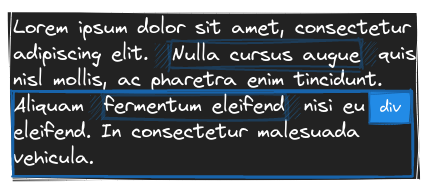 Lorem ipsum dolor sit amet, consectetur
adipiscing elit. Nulla cursus augue quis
nisl mollis, ac pharetra enim tincidunt.
Aliquam fermentum eleifend nisi eu div
eleifend. In consectetur malesuada
vehicula.